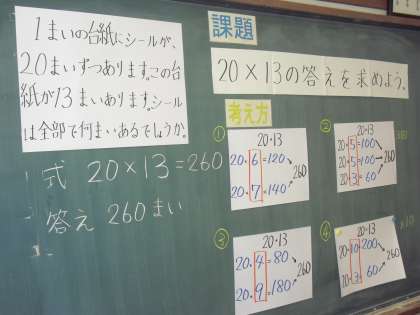 1まいの台紙にシールが、
20まいずつあります。この台
紙が13まいあります。シール
は全部で何まいあるでしょうか。
式 20×13=260
答え 260まい
課題
20×13の答えを求めよう。
考え方
①
20・13
20・6=120
260
20・7=140
②
20・13
20・5=100
20・5=100
260
20・3=60
③
20・13
20・4=80
260
20・9=180
④
20・13
20・10 200
260
20・3 60